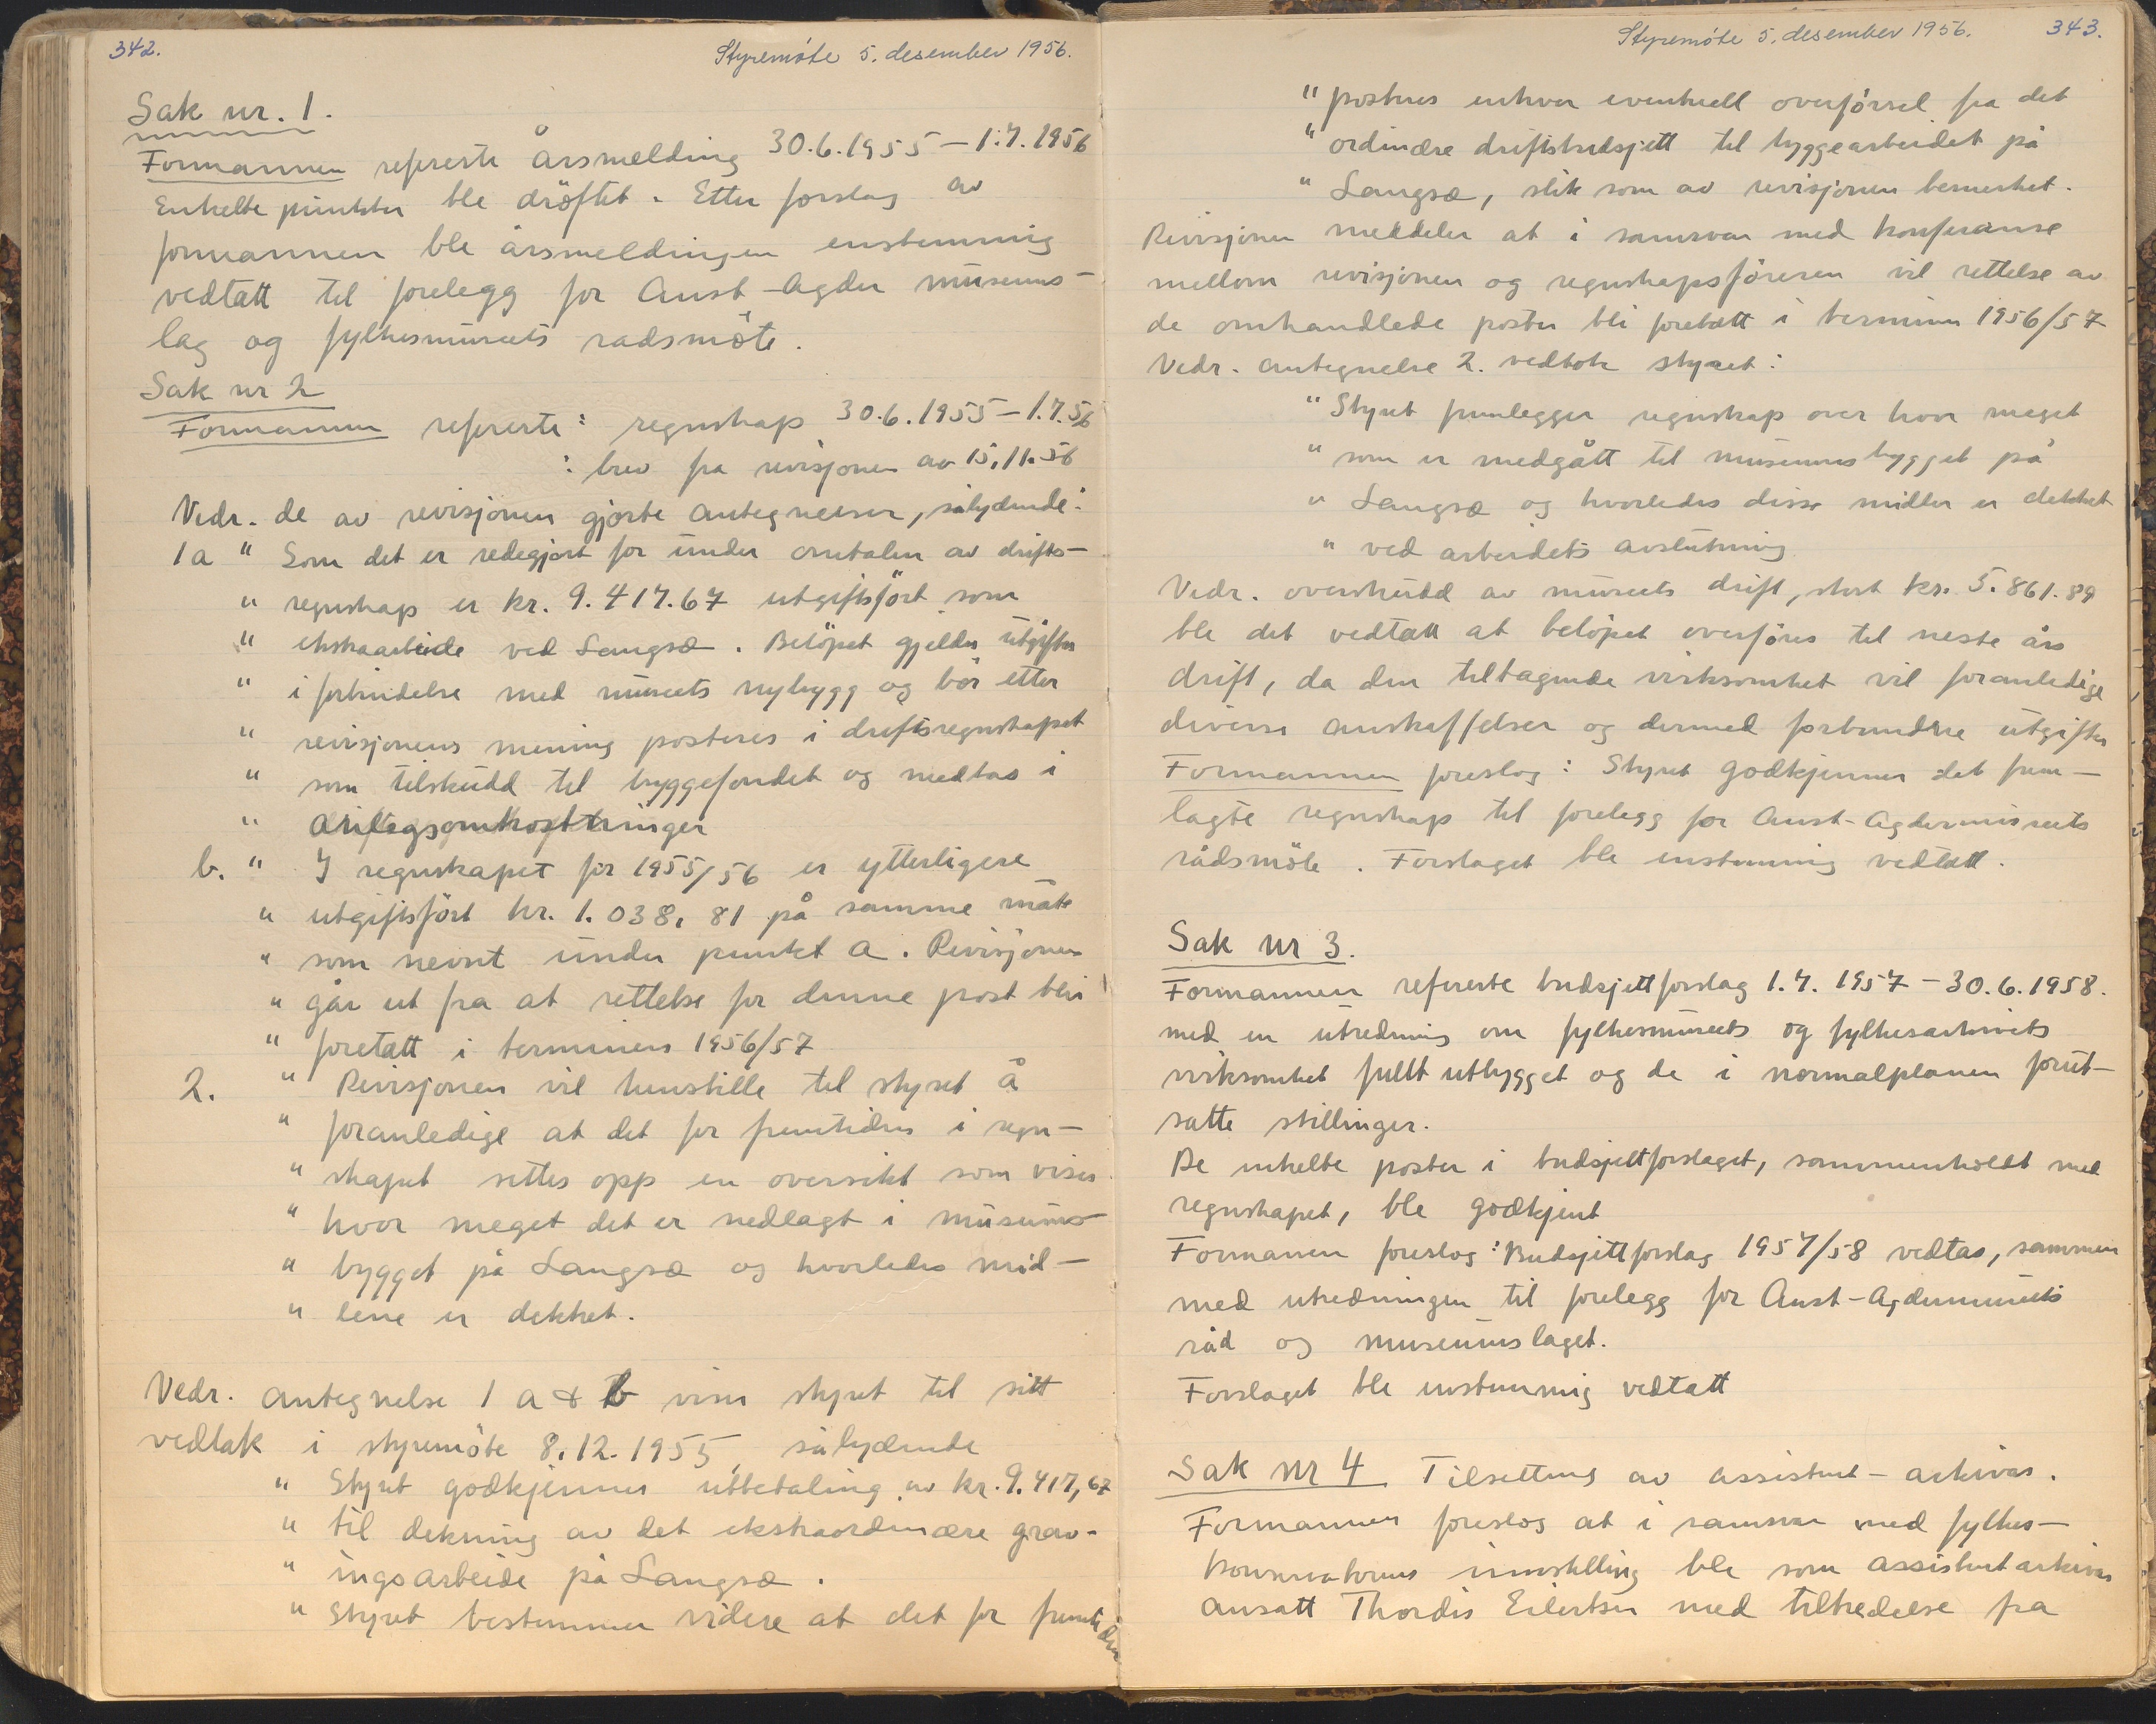 342.
Styremöte 5. desember 1956.
Sak nr. 1.
Formannen refererte årsmelding 30.6.1955 – 1.7.1956
Enkelte punkter ble dröftet. Etter forslag av
formannen ble årsmeldingen enstemmig
vedtatt til forelegg for Aust-Agder museums-
lag og fylkesmuseets rådsmöte.
Sak nr 2
Formannen refererte : regnskap 30.6.1955 – 1.7.56
: brev fra revisjonen av 15.11.56
Vedr. de av revisjonen gjorte antegnelser, sålydende:
1a " Som det er redegjort for under omtalen av drifts-
" regnskap er kr. 9.417.67 utgiftsfört som
" ekstraarbeide ved Langsæ. Belöpet gjelder utgifter
" i forbindelse med museets nybygg og bör etter
" revisjonens mening posteres i driftsregnskapet
" som tilskudd til byggefondet og medtas i
" anlegsomkostninger
b. " I regnskapet for 1955/56 er ytterligere
" utgiftsfört kr. 1.038,81 på samme måte
" som nevnt under punkt a. Revisjonen
" går ut fra at rettelse for denne post blir
" foretatt i terminen 1956/57
2. " Revisjonen vil henstille til styret å
" foranledige at det for fremtiden i regn-
" skapet settes opp en oversikt som viser
" hvor meget det er nedlagt i museums-
" bygget på Langsæ og hvorledes mid-
" lene er dekket.
Vedr. antegnelse 1 a & b viser styret til sitt
vedtak i styremöte 8.12.1955, sålydende
" Styret godkjenner utbetaling av kr. 9.417,67
" til dekning av det ekstraordinære grav-
" ingsarbeide på Langsæ.
" Styret bestemmer videre at det for fremtiden
Styremöte 5. desember 1956.
343.
" posteres enhver eventuell overförsel fra det
" ordinære driftsbudsjett til byggearbeidet på
" Langsæ, slik som av revisjonen bemerket.
Revisjonen meddeler at i samsvar med konferanse
mellom revisjonen og regnskapsföreren vil rettelse av
de omhandlede poster bli foretatt i terminen 1956/57
Vedr. antegnelse 2. vedtok styret:
" Styret fremlegger regnskap over hvor meget
" som er medgått til museumsbygget på
" Langsæ og hvorledes disse midler er dekket
" ved arbeidets avslutning
Vedr. overskudd av museets drift, stort kr. 5.861.89
ble det vedtatt at belöpet overföres til neste års
drift, da den tiltagende virksomhet vil foranledige
diverse anskaffelser og dermed forbundne utgifter
Formannen foreslog : Styret godkjenner det frem-
lagte regnskap til forelegg for Aust-Agdermuseets
rådsmöte. Forslaget ble enstemmig vedtatt.
Sak nr 3.
Formannen refererte budsjettforslag 1.7.1957 – 30.6.1958.
med en utredning om fylkesmuseets og fylkesarkivets
virksomhet fullt utbygget og de i normalplanen forut-
satte stillinger.
De enkelte poster i budsjettforslaget, sammenholdt med
regnskapet, ble godkjent
Formannen foreslog : Budsjettforslag 1957/58 vedtas, sammen
med utredningen til forelegg for Aust-Agdermuseets
råd og museumslaget.
Forslaget ble enstemmig vedtatt
Sak nr 4 Tilsetting av assistent-arkivar.
Formannen foreslog at i samsvar med fylkes-
konservatorens innstilling ble som assistentarkivar
ansatt Thordis Eilertsen med tiltredelse fra